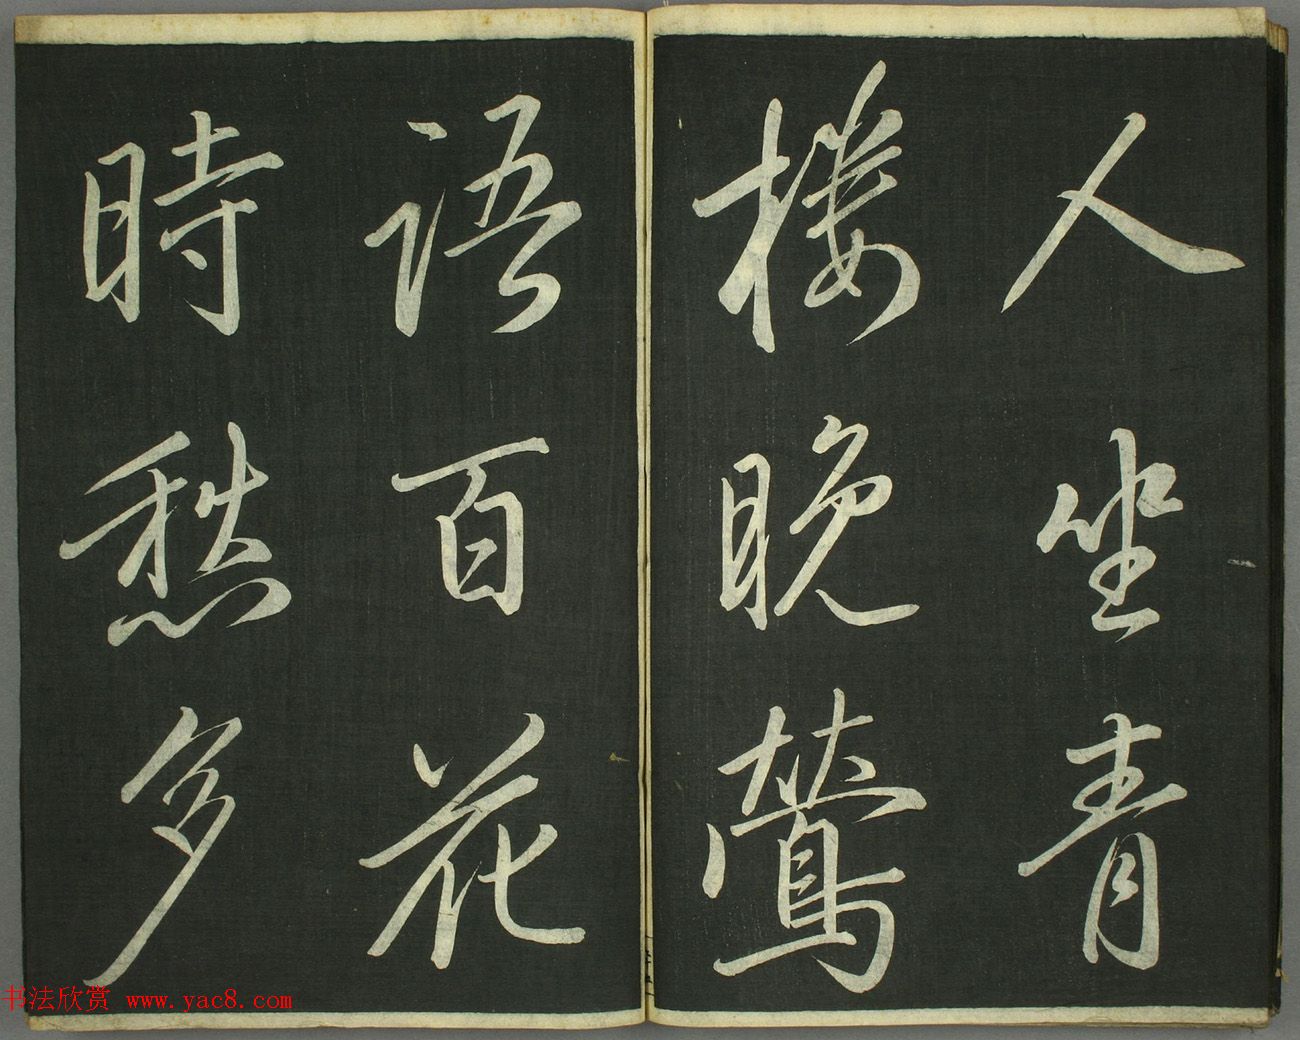 人坐青
樓晚鶯
語百花
時愁多
书法欣赏 www.yac8.com